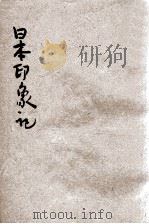 日本印象记
mtoou.info